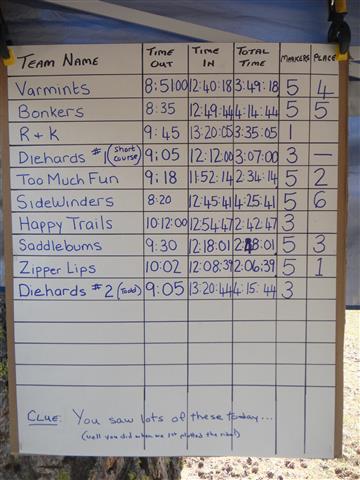 TEAM NAME TIME OUT TIME IN TOTAL TIME MARKERS PLACE
Varmints 8:5100 12:40:18 3:49:18 5 4
Bonkers 8:35 12:49:44 4:14:44 5 5
R + K 9:45 13:20:05 3:35:05 1
Diehards #1 (short course) 9:05 12:12:00 3:07:00 3 —
Too Much Fun 9:18 11:52:14 2:34:14 5 2
SideWinders 8:20 12:45:41 4:25:41 5 6
Happy Trails 10:12:00 12:54:47 2:42:47 3
Saddlebums 9:30 12:18:01 2:48:01 5 3
Zipper Lips 10:02 12:08:39 2:06:39 5 1
Diehards #2 (Todd) 9:05 13:20:44 4:15:44 3
CLUE: You saw lots of these today...
(well you did when we 1st plotted the ride!)